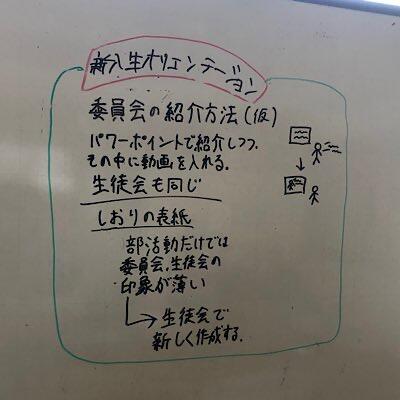 新入生オリエンテーション
委員会の紹介方法(仮)
パワーポイントで紹介しつつ、
その中に動画を入れる。
生徒会も同じ
しおりの表紙
部活動だけでは
委員会、生徒会の
印象が薄い
→生徒会で
新しく作成する。